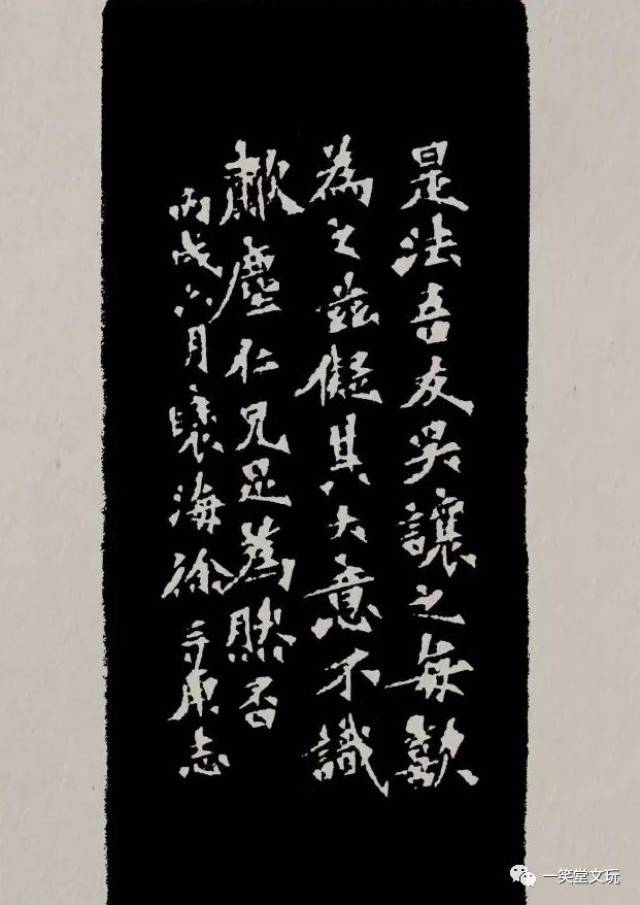 是法吾友吳讓之每歡
為之茲儗其大意不識
歗塵仁兄是為然否
丙戌六月褱海徐三庚志
一笑堂文玩